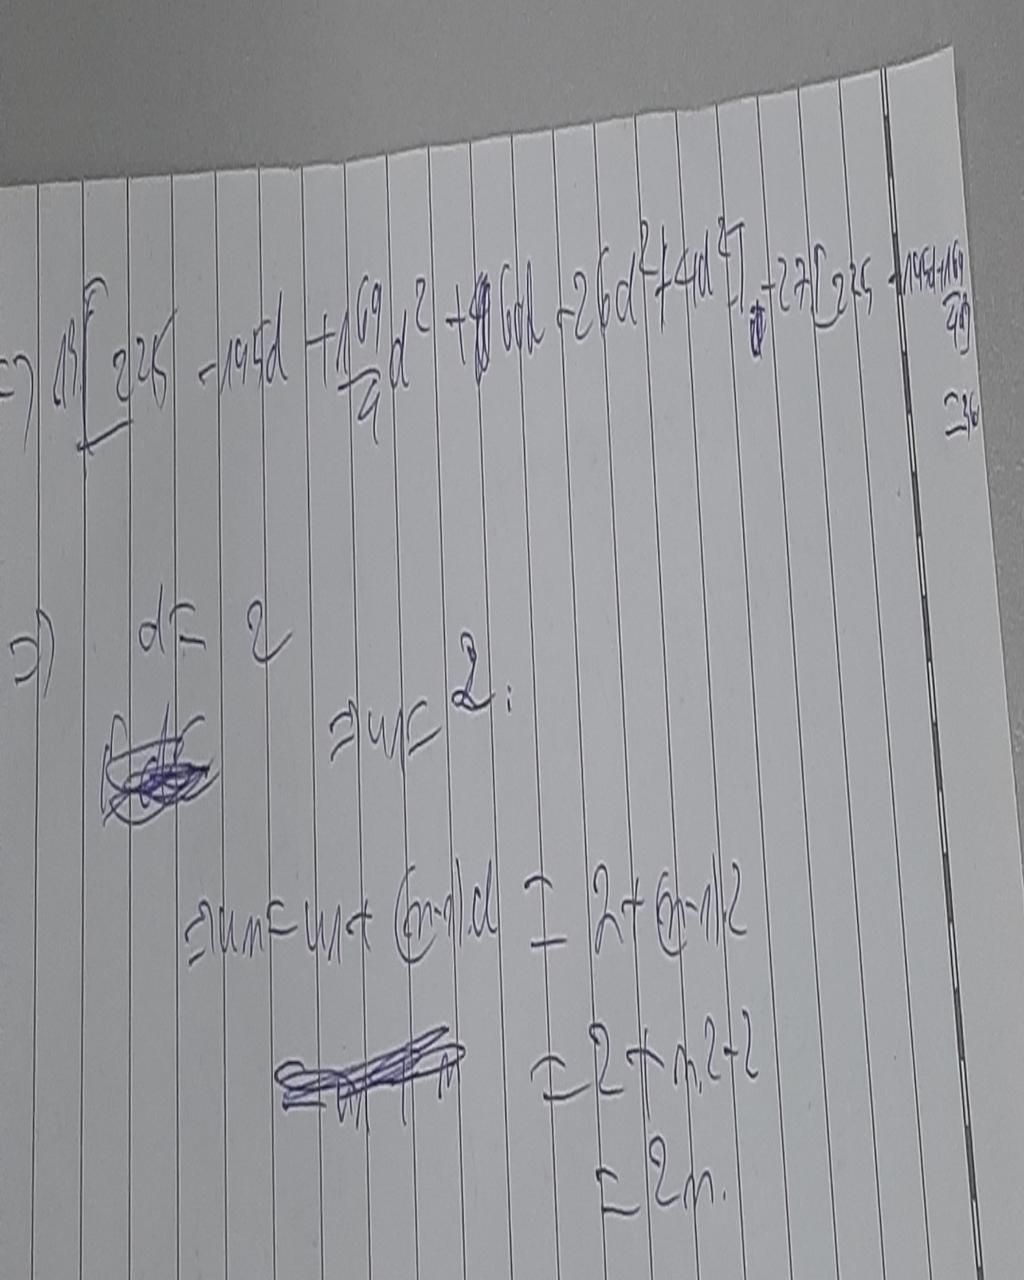 =) [225 - 195d + 169/4 d² + 60d - 26d² + 4d²] + 27[225 - 195d + 169
=36
=) d = 2
=) u1 = 2.
=) un = u1 + (n-1).d = 2 + (n-1).2
= 2 + n.2 - 2
= 2n.